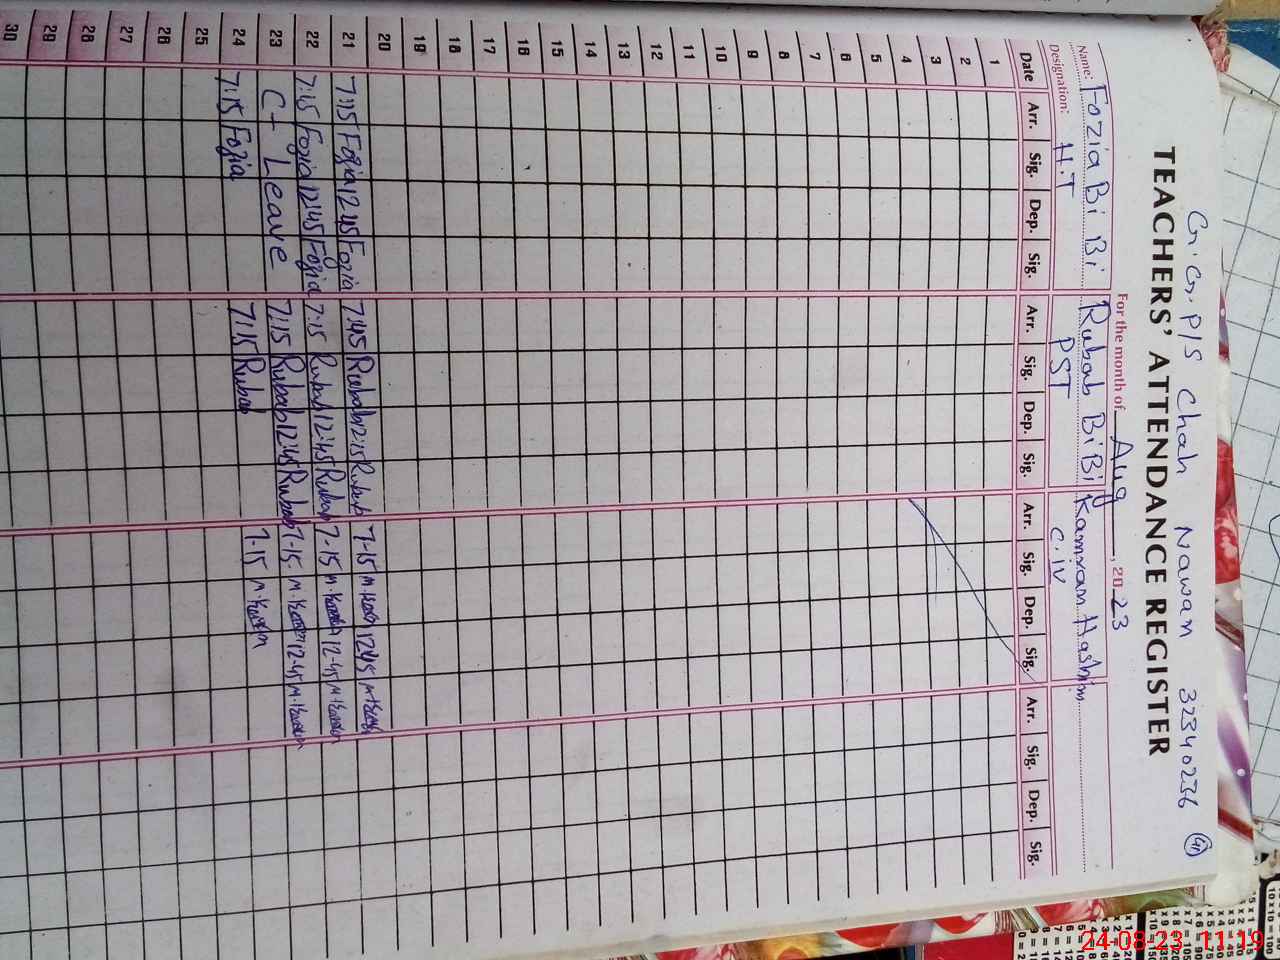 G.G.P/S Chah Nawan 32340236
TEACHERS' ATTENDANCE REGISTER
For the month of Aug, 2023
Name: Fozia Bi Bi Rubab BiBi Kamran Hashim
Designation: H.T PST C.IV
Date Arr. Sig. Dep. Sig. Arr. Sig. Dep. Sig. Arr. Sig. Dep. Sig. Arr. Sig. Dep. Sig.
1
2
3
4
5
6
7
8
9
10
11
12
13
14
15
16
17
18
19
20
21 7:15 Fozia 12:45 Fozia 7:45 Rubab 12:15 Rubab 7-15 12:45
22 7:15 Fozia 12:45 Fozia 7:15 Rubab 12:45 Rubab 7-15 12-45
23 C-Leave 7:15 Rubab 12:45 Rubab 7-15 12-45
24 7:15 Fozia 7:15 Rubab 7-15
25
26
27
28
29
30
24-08-23 11:19